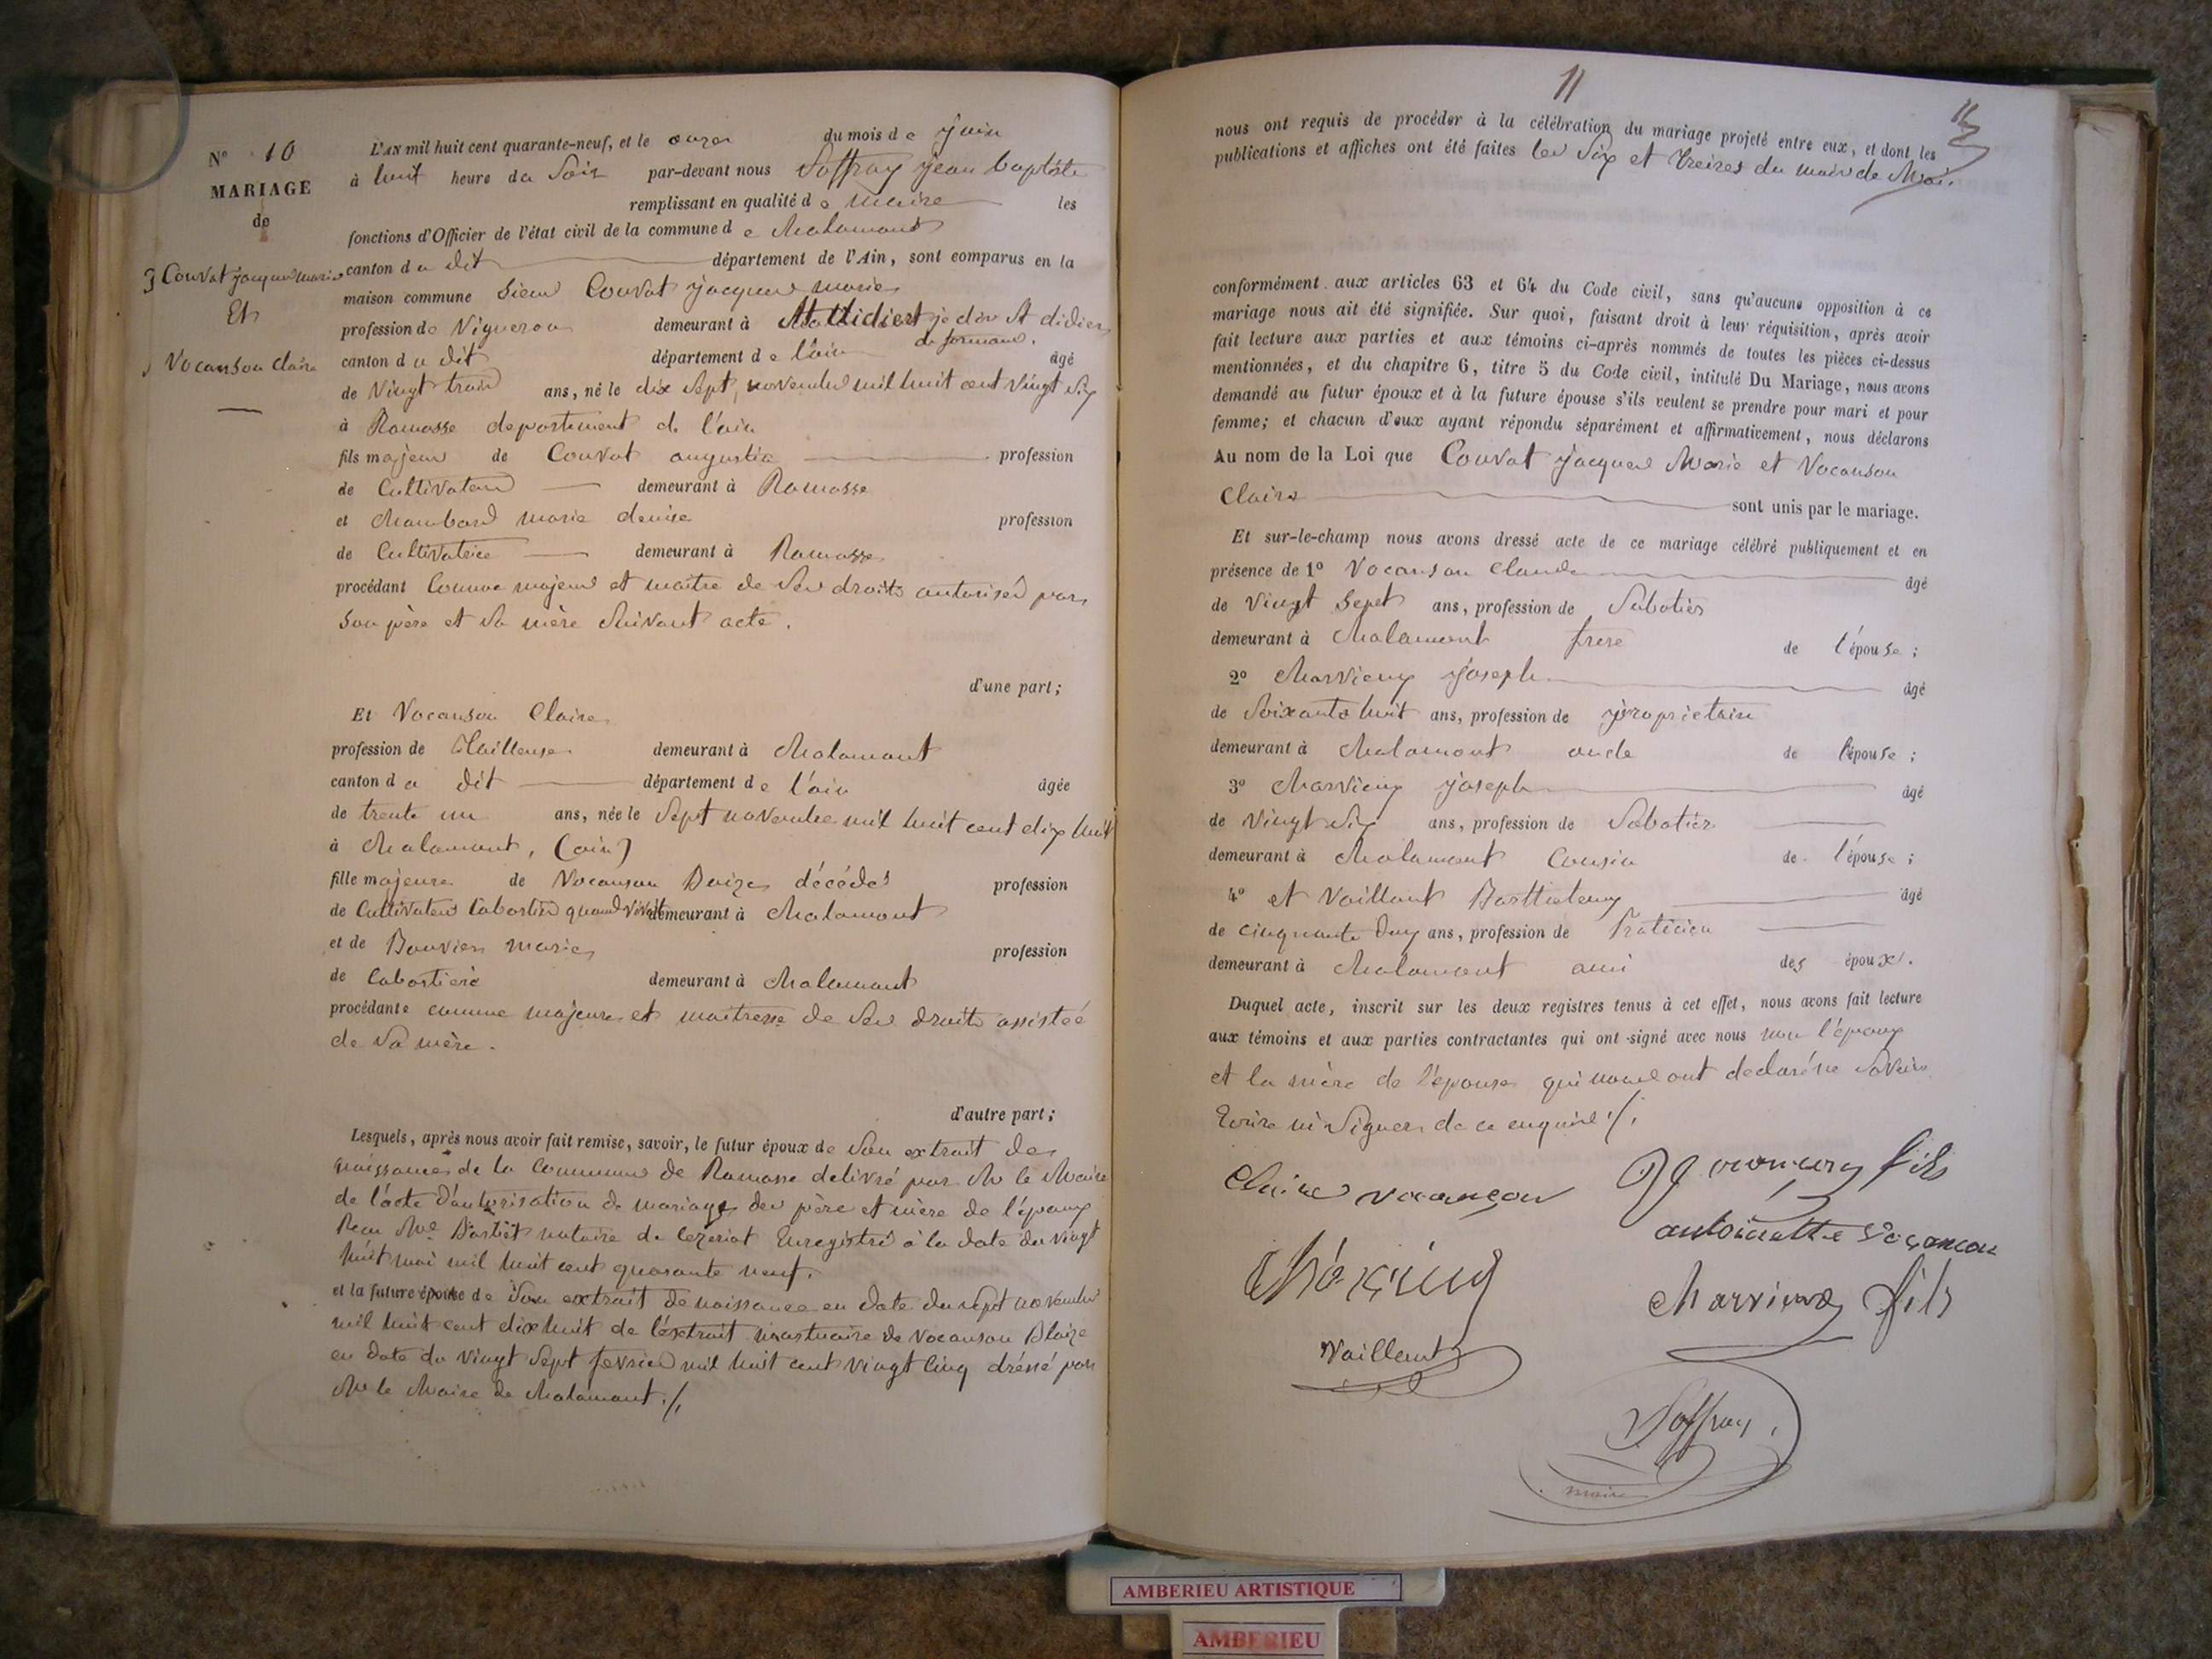 N° 10
MARIAGE
de
Couvat jacques marie
Et
Vocanson Claire
L'AN mil huit cent quarante-neuf, et le onze du mois de juin
à huit heure du Soir par-devant nous Soffray jean baptiste
remplissant en qualité de maire les
fonctions d'Officier de l'état civil de la commune de Chalamont
canton du dit département de l'Ain, sont comparus en la
maison commune Sieur Couvat jacques marie
profession de Vigneron demeurant à St didier je dis St didier
de formans.
canton du dit département de l'ain âgé
de Vingt trois ans, né le dix sept novembre mil huit cent vingt six
à Ramasse departement de l'ain
fils majeur de Couvat augustin profession
de Cultivateur demeurant à Ramasse
et Chambard marie denise profession
de Cultivatrice demeurant à Ramasse
procédant comme majeur et maitre de ses droits autorisé par
son père et sa mère suivant acte.
d'une part;
Et Vocanson Claire
profession de tailleuse demeurant à Chalamont
canton du dit département de l'ain âgée
de trente un ans, née le Sept novembre mil huit cent dix huit
à Chalamont, (ain)
fille majeure de Vocanson décédé profession
de Cultivateur quand vivait demeurant à Chalamont
et de Bouvier marie profession
de demeurant à Chalamont
procédante comme majeure et maitresse de ses droits assistée
de sa mère.
d'autre part;
Lesquels, après nous avoir fait remise, savoir, le futur époux de son extrait de
naissance de la Commune de Ramasse delivré par Mr le Maire
de l'acte d'autorisation de mariage des père et mère de l'époux
notaire de Enregistré à la date du vingt
huit mai mil huit cent quarante neuf.
et la future épouse de Son extrait de naissance en date du sept novembre
mil huit cent dix huit de l'extrait mortuaire de Vocanson Blaize
en date du vingt Sept fevrier mil huit cent vingt cinq dréssé par
Mr le Maire de Chalamont ./.
11
nous ont requis de procéder à la célébration du mariage projeté entre eux, et dont les
publications et affiches ont été faites les Six et treizes du mois de Mai.
conformément aux articles 63 et 64 du Code civil, sans qu'aucune opposition à ce
mariage nous ait été signifiée. Sur quoi, faisant droit à leur réquisition, après avoir
fait lecture aux parties et aux témoins ci-après nommés de toutes les pièces ci-dessus
mentionnées, et du chapitre 6, titre 5 du Code civil, intitulé Du Mariage, nous avons
demandé au futur époux et à la future épouse s'ils veulent se prendre pour mari et pour
femme; et chacun d'eux ayant répondu séparément et affirmativement, nous déclarons
Au nom de la Loi que Couvat jacques Marie et Vocanson
Claire sont unis par le mariage.
Et sur-le-champ nous avons dressé acte de ce mariage célébré publiquement et en
présence de 1° Vocanson Claude âgé
de Vingt Sept ans, profession de Sabotier
demeurant à Chalamont frere de l'épouse;
2° Charvieux joseph âgé
de Soixante huit ans, profession de proprietaire
demeurant à Chalamont oncle de l'épouse;
3° Charvieux joseph âgé
de Vingt Six ans, profession de Sabotier
demeurant à Chalamont Cousin de l'épouse;
4° et Vaillant Barthelemy âgé
de cinquante ans, profession de Praticien
demeurant à Chalamont ami des époux.
Duquel acte, inscrit sur les deux registres tenus à cet effet, nous avons fait lecture
aux témoins et aux parties contractantes qui ont signé avec nous non l'époux
et la mère de l'épouse qui nous ont declaré ne Savoir
Ecrire ni Signer de ce enquis ./.
Claire vocançon
fils
antoinette Vocançon
Charvieux fils
Vaillant
Soffray
maire
AMBERIEU ARTISTIQUE
AMBERIEU